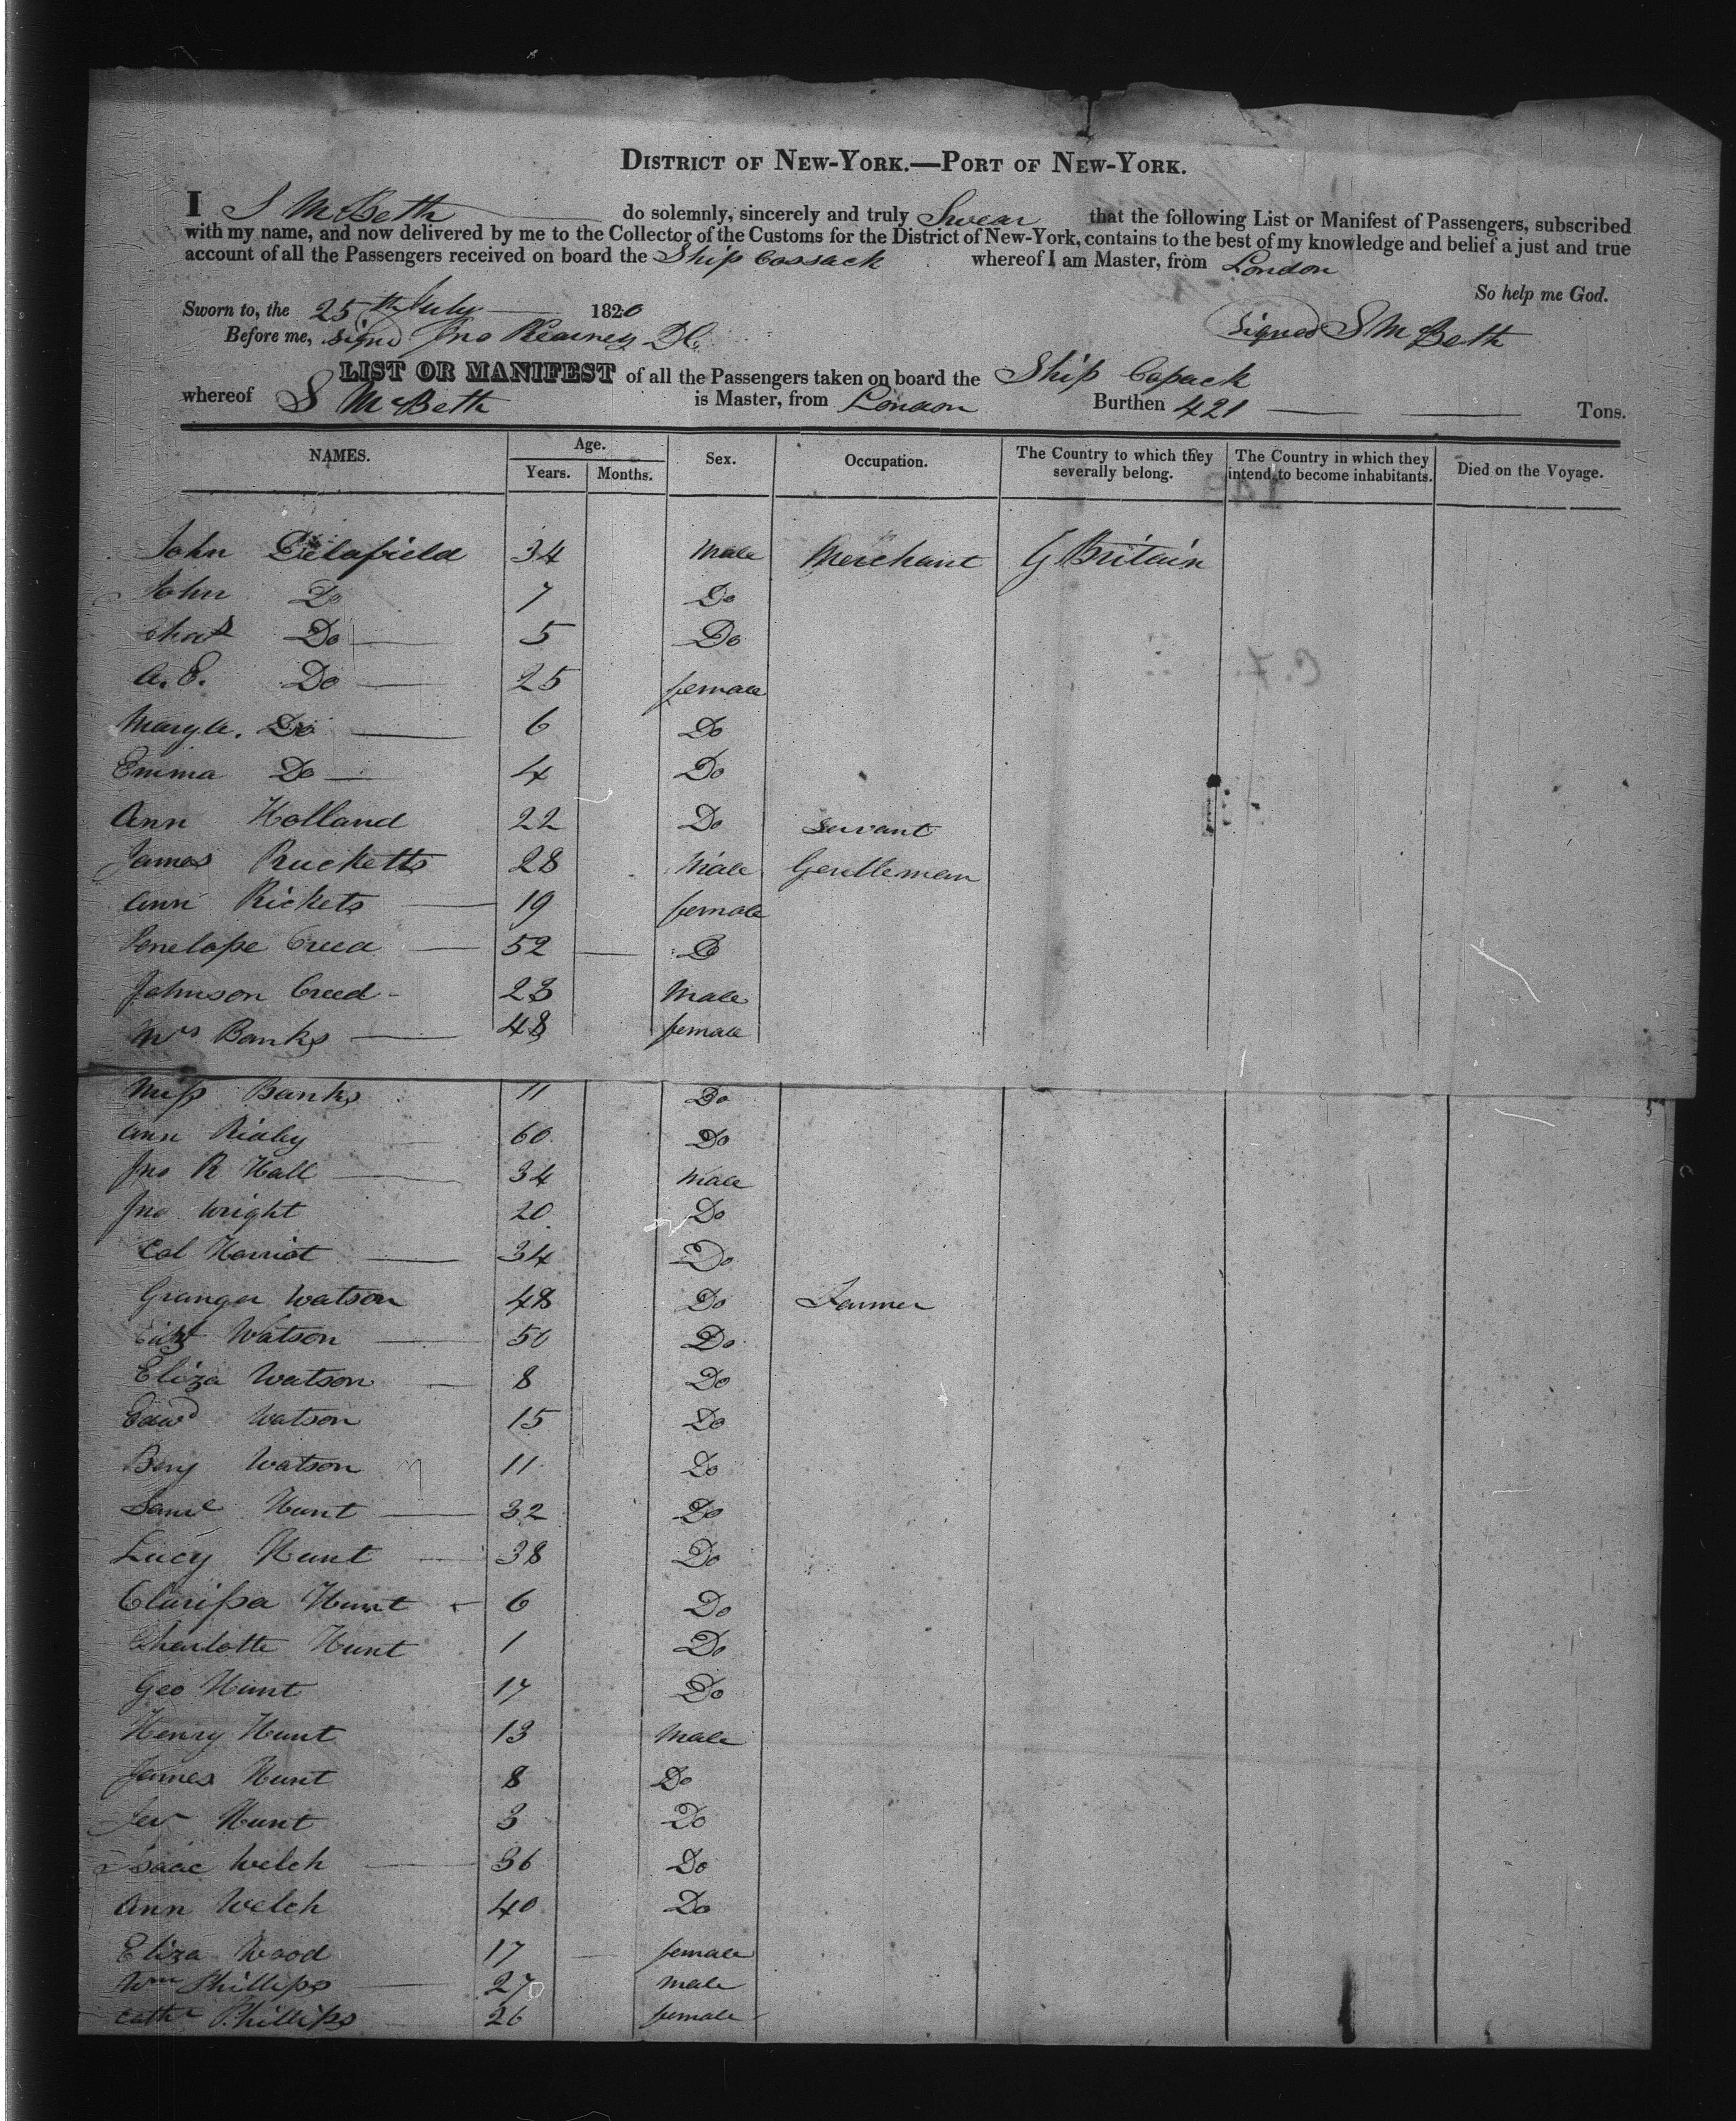 DISTRICT OF NEW-YORK.—PORT OF NEW-YORK.
I S McBeth do solemnly, sincerely and truly Swear that the following List or Manifest of Passengers, subscribed
with my name, and now delivered by me to the Collector of the Customs for the District of New-York, contains to the best of my knowledge and belief a just and true
account of all the Passengers received on board the Ship Cossack whereof I am Master, from London
So help me God.
Sworn to, the 25th July 1820
Before me, signd Jno Kearney DC. Signed S McBeth
LIST OR MANIFEST of all the Passengers taken on board the Ship Cossack
whereof S McBeth is Master, from London Burthen 421 Tons.
NAMES. Age. Years. Months. Sex. Occupation. The Country to which they severally belong. The Country in which they intend to become inhabitants. Died on the Voyage.
John Delafield 34 Male Merchant G Britain
John Do 7 Do
Chas Do 5 Do
A. E. Do 25 female
Mary A. Do 6 Do
Emma Do 4 Do
Ann Holland 22 Do Servant
James Rucketts 28 Male Gentleman
Ann Rickets 19 female
Penelope Creed 52 Do
Johnson Creed 23 Male
Mrs Banks 48 female
Miss Banks 11 Do
Ann 60 Do
Jno R Hall 34 Male
Jno Wright 20 Do
Col Harriot 34 Do
Granger Watson 48 Do Farmer
Eliz Watson 50 Do
Eliza Watson 8 Do
Edwd Watson 15 Do
Benj Watson 11 Do
Saml Hunt 32 Do
Lucy Hunt 38 Do
Clarissa Hunt 6 Do
Charlotte Hunt 1 Do
Geo Hunt 17 Do
Henry Hunt 13 Male
James Hunt 8 Do
Hunt 3 Do
Isaac Welch 36 Do
Ann Welch 40 Do
Eliza Wood 17 female
Wm Phillips 27 male
Cathe Phillips 26 female